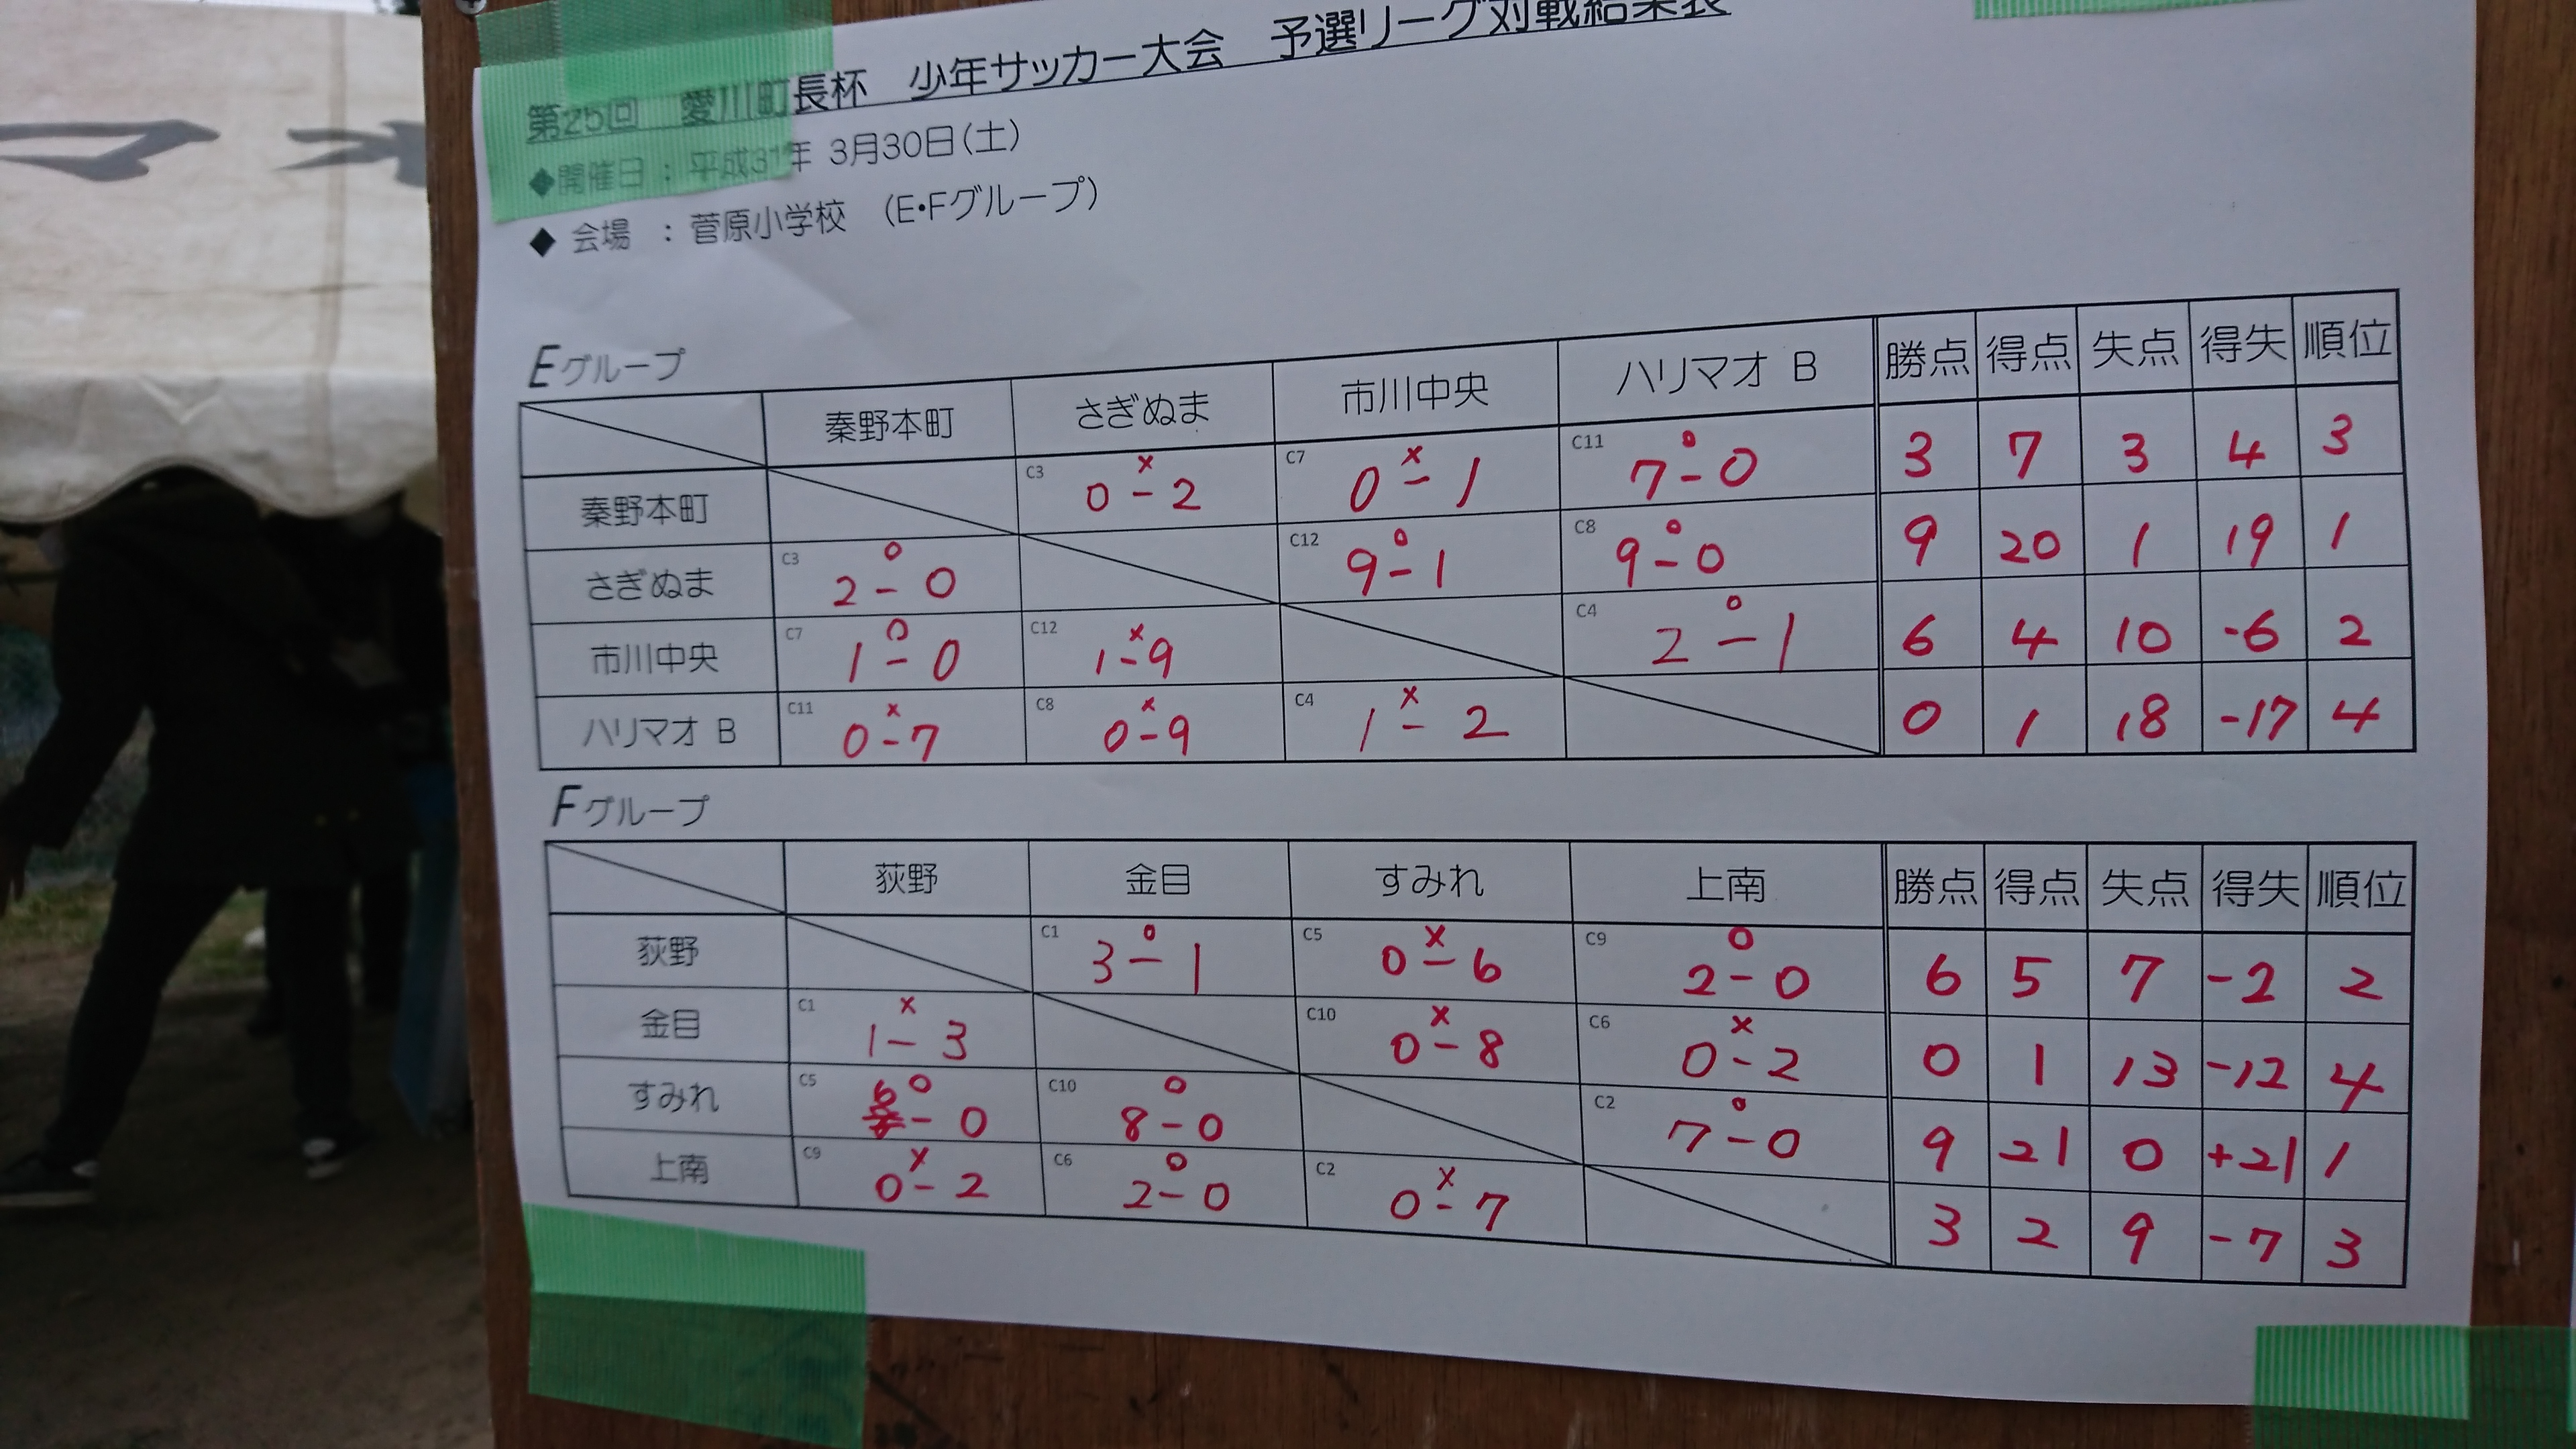 第25回 愛川町長杯 少年サッカー大会 予選リーグ対戦結果表
◆開催日 : 平成31年 3月30日(土)
◆ 会場 : 菅原小学校 (E・Fグループ)
Eグループ
秦野本町 さぎぬま 市川中央 ハリマオ B 勝点 得点 失点 得失 順位
秦野本町 C3 × 0-2 C7 × 0-1 C11 ○ 7-0 3 7 3 4 3
さぎぬま C3 ○ 2-0 C12 ○ 9-1 C8 ○ 9-0 9 20 1 19 1
市川中央 C7 ○ 1-0 C12 × 1-9 C4 ○ 2-1 6 4 10 -6 2
ハリマオ B C11 × 0-7 C8 × 0-9 C4 × 1-2 0 1 18 -17 4
Fグループ
荻野 金目 すみれ 上南 勝点 得点 失点 得失 順位
荻野 C1 ○ 3-1 C5 × 0-6 C9 ○ 2-0 6 5 7 -2 2
金目 C1 × 1-3 C10 × 0-8 C6 × 0-2 0 1 13 -12 4
すみれ C5 ○ 6-0 C10 ○ 8-0 C2 ○ 7-0 9 21 0 +21 1
上南 C9 × 0-2 C6 ○ 2-0 C2 × 0-7 3 2 9 -7 3